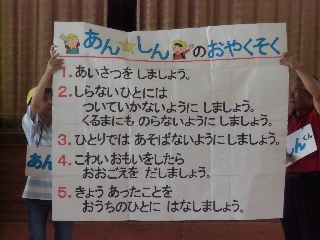 あん☆しんのおやくそく
1. あいさつを しましょう。
2. しらないひとには
ついていかないように しましょう。
くるまにも のらないように しましょう。
3. ひとりでは あそばないように しましょう。
4. こわい おもいをしたら
おおごえを だしましょう。
5. きょう あったことを
おうちのひとに はなしましょう。
あん
しん
くん